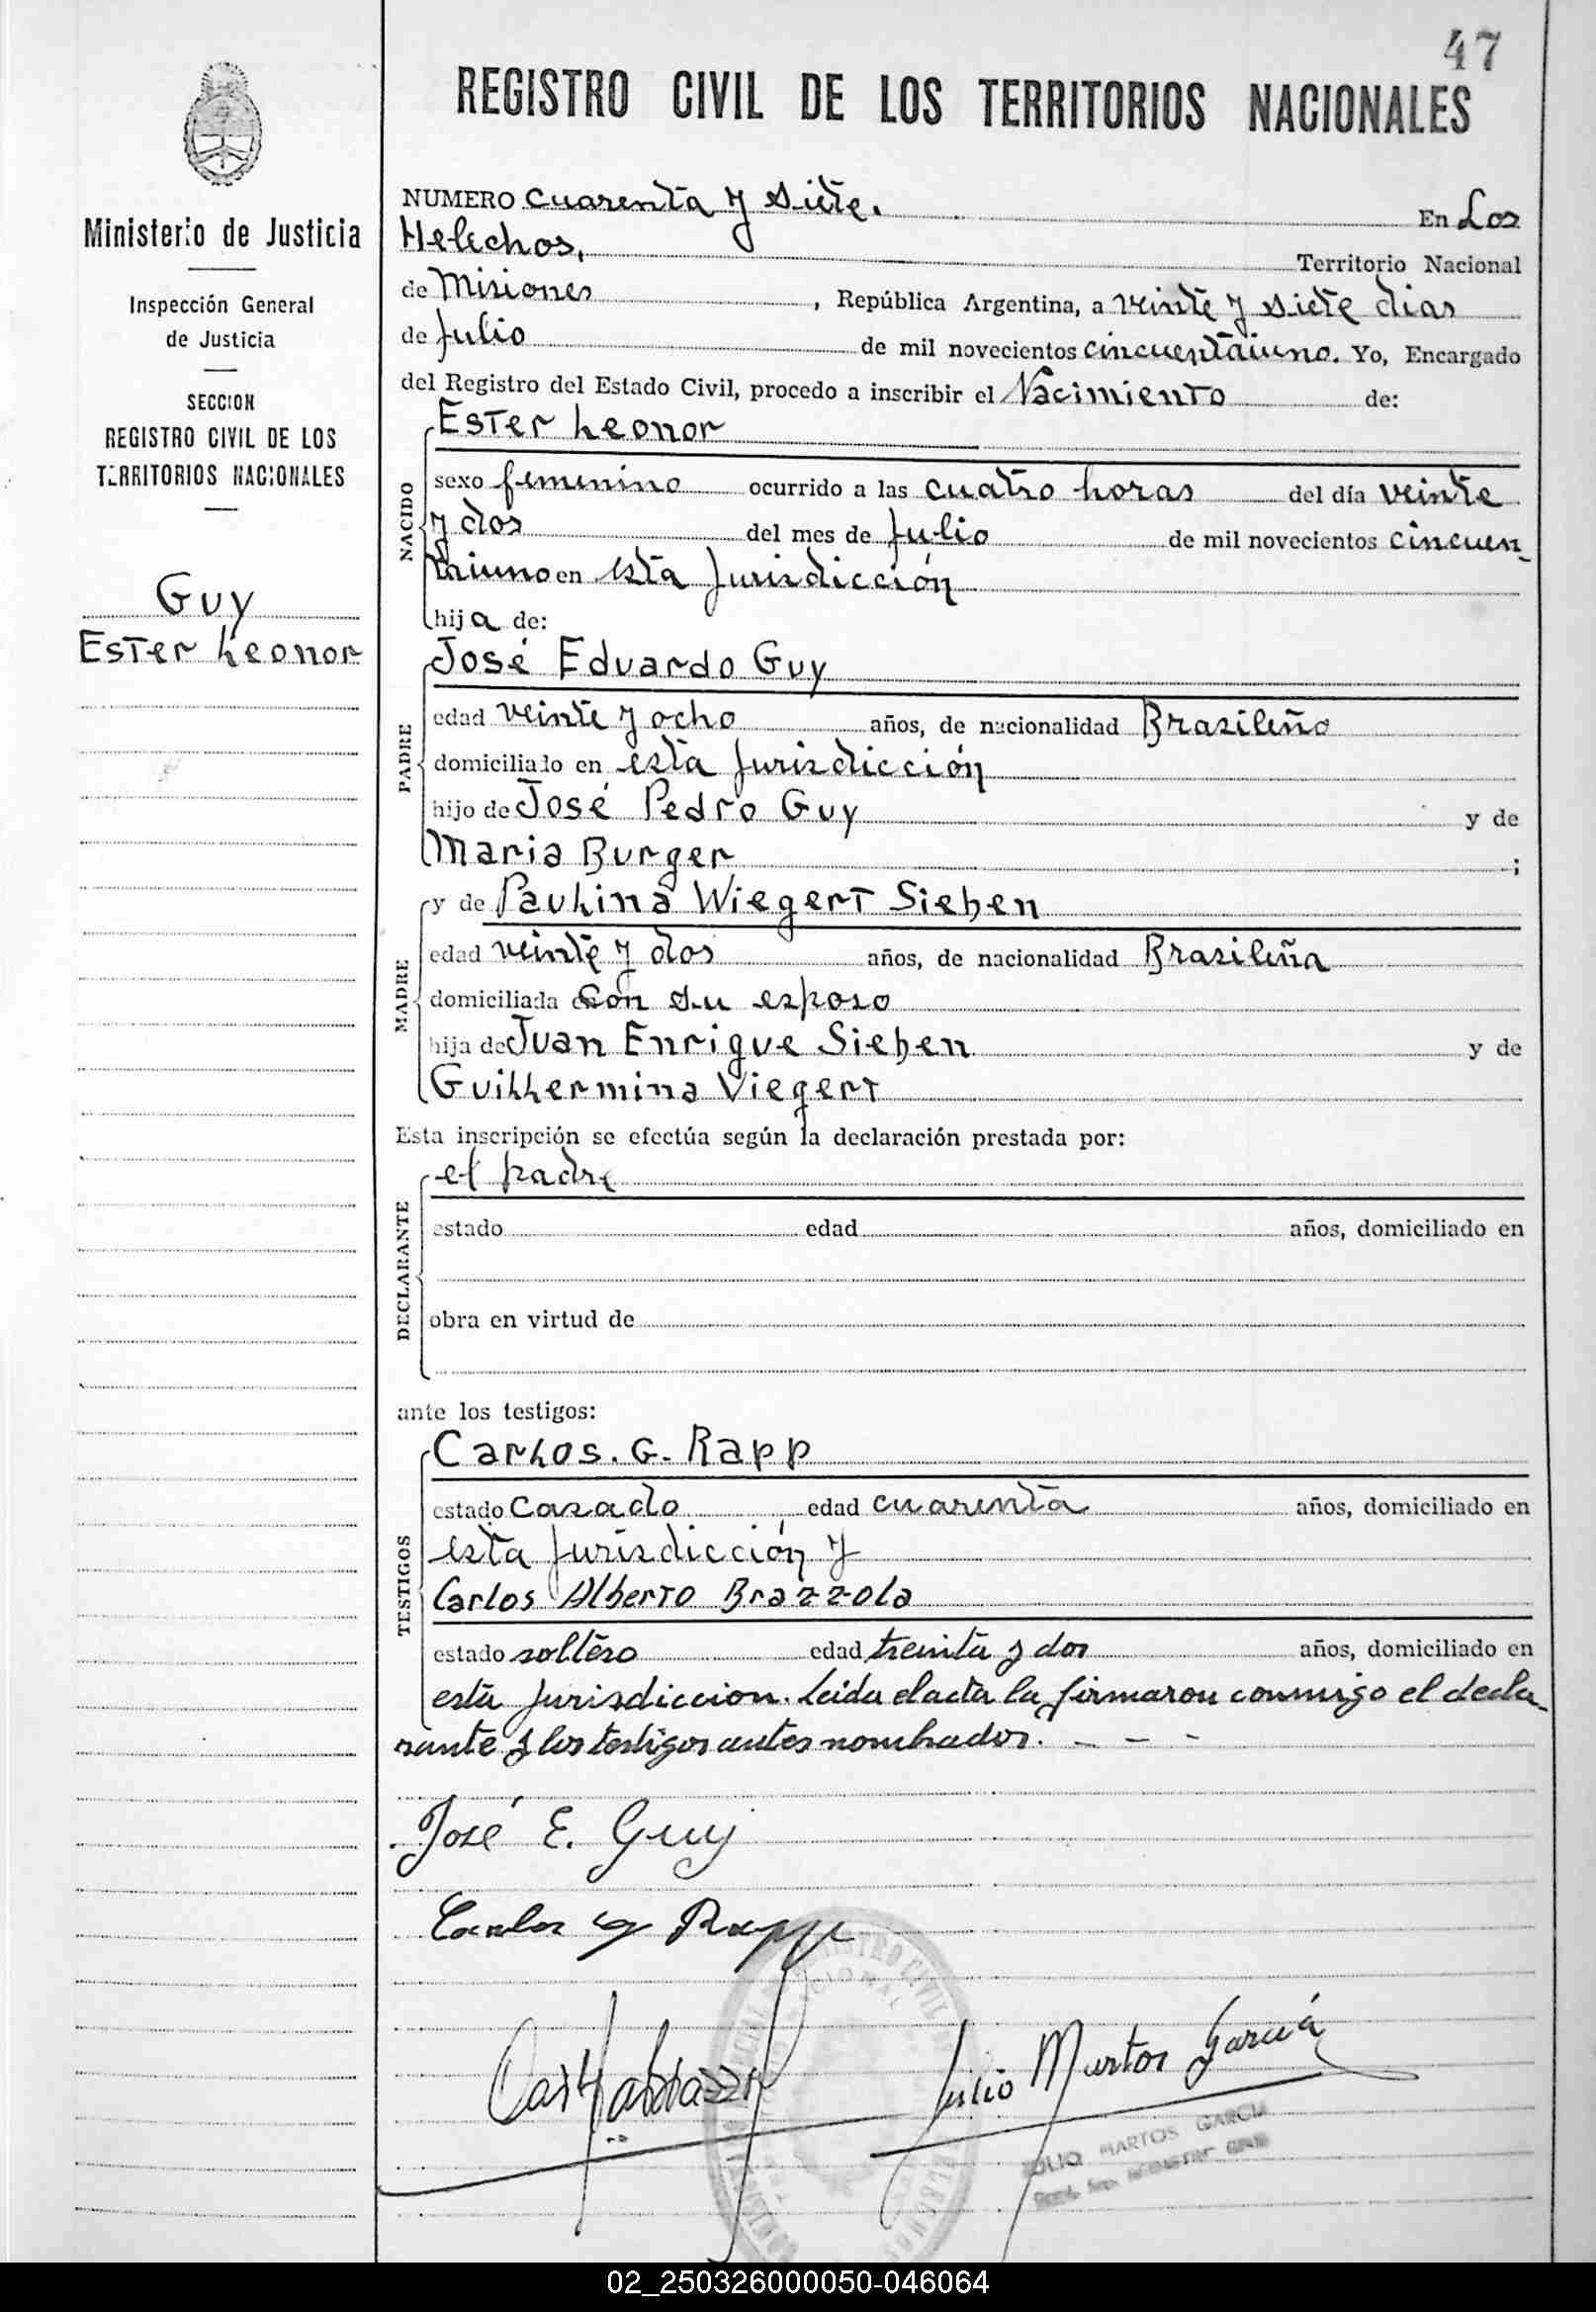 47
REGISTRO CIVIL DE LOS TERRITORIOS NACIONALES
Ministerio de Justicia
Inspección General
de Justicia
SECCION
REGISTRO CIVIL DE LOS
TERRITORIOS NACIONALES
Guy
Ester Leonor
NUMERO cuarenta y siete. En Los
Helechos, Territorio Nacional
de Misiones, República Argentina, a veinte y siete dias
de Julio de mil novecientos cincuentaiuno. Yo, Encargado
del Registro del Estado Civil, procedo a inscribir el Nacimiento de:
NACIDO
Ester Leonor
sexo femenino ocurrido a las cuatro horas del día veinte
y dos del mes de Julio de mil novecientos cincuen-
taiuno en esta Jurisdicción
hija de:
PADRE
José Eduardo Guy
edad veinte y ocho años, de nacionalidad Brasileño
domiciliado en esta Jurisdicción
hijo de José Pedro Guy y de
Maria Burger ;
MADRE
y de Paulina Wiegert Sieben
edad veinte y dos años, de nacionalidad Brasileña
domiciliada con su esposo
hija de Juan Enrique Sieben y de
Guillermina Viegert
Esta inscripción se efectúa según la declaración prestada por:
DECLARANTE
el padre
estado edad años, domiciliado en
obra en virtud de
ante los testigos:
TESTIGOS
Carlos. G. Rapp
estado casado edad cuarenta años, domiciliado en
esta Jurisdicción y
Carlos Alberto Brazzola
estado soltero edad treinta y dos años, domiciliado en
esta Jurisdiccion. Leida el acta la firmaron conmigo el decla-
rante y los testigos antes nombrados. - - -
José E. Guy
Carlos G Rapp
Julio Martos García
JULIO MARTOS GARCIA
02_250326000050-046064